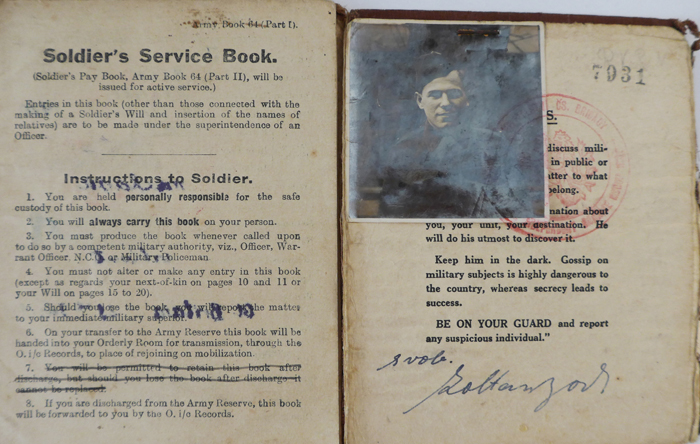 Army Book 64 (Part I).
Soldier's Service Book.
(Soldier's Pay Book, Army Book 64 (Part II), will be
issued for active service.)
Entries in this book (other than those connected with the
making of a Soldier's Will and insertion of the names of
relatives) are to be made under the superintendence of an
Officer.
Instructions to Soldier.
1. You are held personally responsible for the safe
custody of this book.
2. You will always carry this book on your person.
3. You must produce the book whenever called upon
to do so by a competent military authority, viz., Officer, War-
rant Officer, N.C.O. or Military Policeman.
4. You must not alter or make any entry in this book
(except as regards your next-of-kin on pages 10 and 11 or
your Will on pages 15 to 20).
5. Should you lose the book, you will report the matter
to your immediate military superior.
6. On your transfer to the Army Reserve this book will be
handed into your Orderly Room for transmission, through the
O. i/c Records, to place of rejoining on mobilization.
7. You will be permitted to retain this book after
discharge, but should you lose the book after discharge it
cannot be replaced.
8. If you are discharged from the Army Reserve, this book
will be forwarded to you by the O. i/c Records.
7931
S.
discuss mili-
in public or
to what
belong.
about
you, your unit, your destination. He
will do his utmost to discover it.
Keep him in the dark. Gossip on
military subjects is highly dangerous to
the country, whereas secrecy leads to
success.
BE ON YOUR GUARD and report
any suspicious individual."
svob.